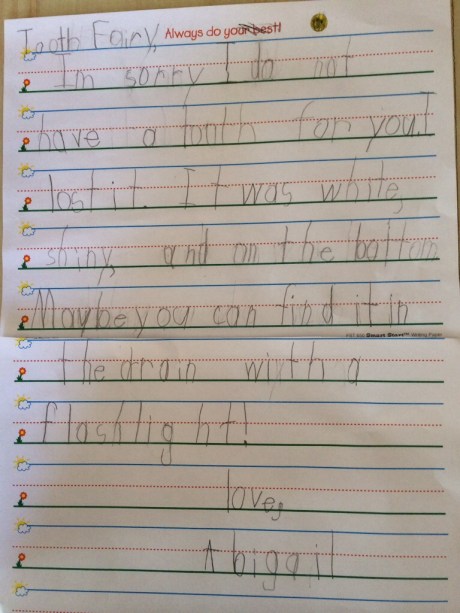 Tooth Fairy, Always do your best!
Im sorry I do not
have a tooth for you. I
lost it. It was white,
shiny, and on the bottom
Maybe you can find it in
the drain with a
flashlight!
love,
Abigail